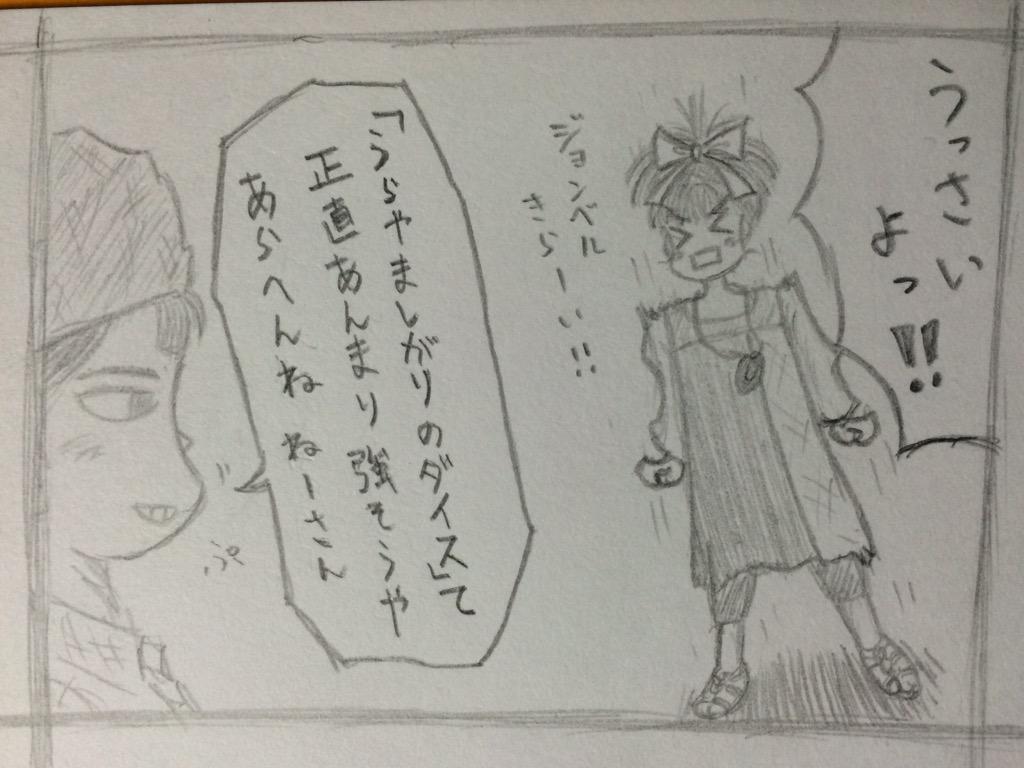 うっさい
よっ!!
ジョンベル
きらーい!!
「うらやましがりのダイス」て
正直あんまり強そうや
あらへんね ねーさん
ぷ